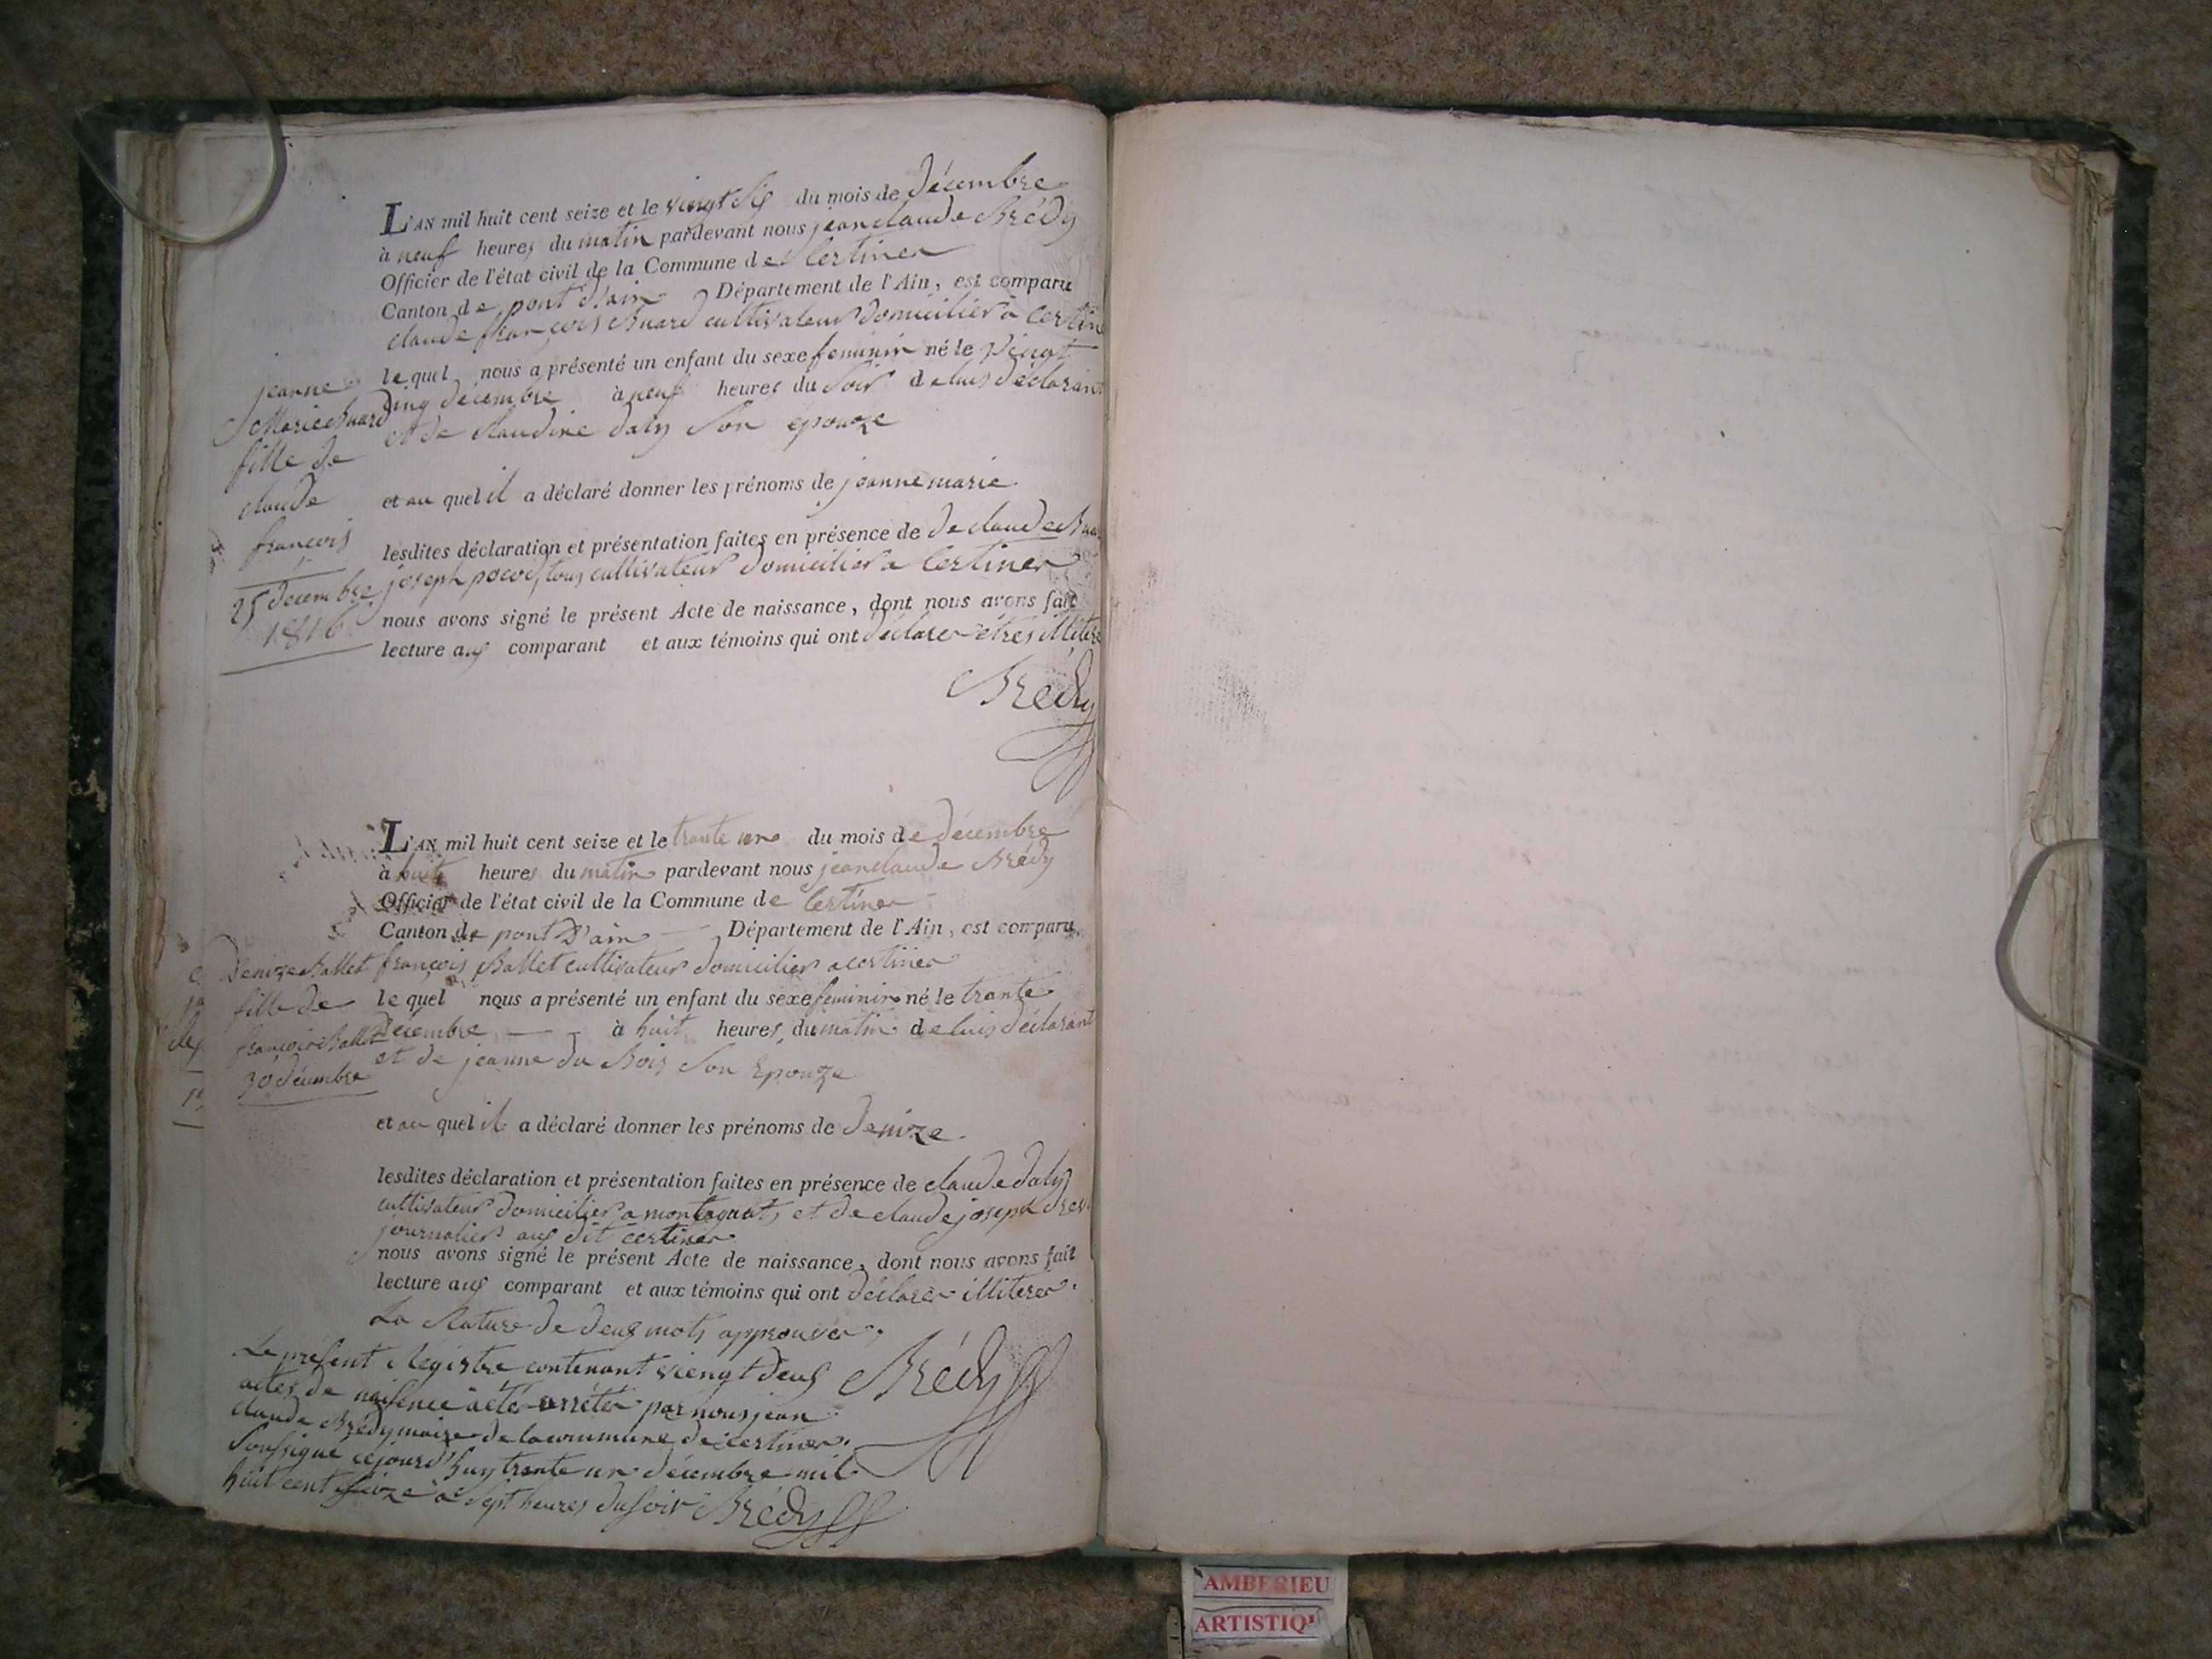 L'AN mil huit cent seize et le vingt six du mois de décembre
à neuf heures du matin pardevant nous jean claude Brédy
Officier de l'état civil de la Commune de Certiner
Canton de pont d'ain Département de l'Ain, est comparu
claude françois Buard cultivateur domicilier à Certine
le quel nous a présenté un enfant du sexe feminin né le vingt
cinq décembre à neuf heures du soir de luis déclarant
et de claudine daly son épouze
et au quel il a déclaré donner les prénoms de jeanne marie
lesdites déclaration et présentation faites en présence de de claude Bua
joseph pocod, tous cultivateur domicilier a Certiner
nous avons signé le présent Acte de naissance, dont nous avons fait
lecture aux comparant et aux témoins qui ont déclarer êtres illitere
Brédy
jeanne
Marie Buard
fille de
claude
françois
25 décembre
1816
L'AN mil huit cent seize et le trante une du mois de décembre
à huit heures du matin pardevant nous jean claude Brédy
Officier de l'état civil de la Commune de Certiner
Canton de pont d'ain Département de l'Ain, est comparu
françois Ballet cultivateur domicilier a certiner
le quel nous a présenté un enfant du sexe feminin né le trante
décembre à huit heures du matin de luis déclarant
et de jeanne du Bois son épouze
et au quel il a déclaré donner les prénoms de denize
lesdites déclaration et présentation faites en présence de claude daly
cultivateur domicilier a montagnat, et de claude joseph
journalier aux dit certiner
nous avons signé le présent Acte de naissance, dont nous avons fait
lecture aux comparant et aux témoins qui ont déclarer illiterer
La Rature de deux mots approuver,
Brédy
denize Ballet
fille de
françois Ballet
30 décembre
Le présent Registre contenant viengt deux
actes de naissence a été arrêter par nous jean
claude Brédy maire de la commune de certiner
soussigné cejourd'huy trante un décembre mil
huit cent seize à sept heures du soir Brédy
AMBERIEU
ARTISTIQ